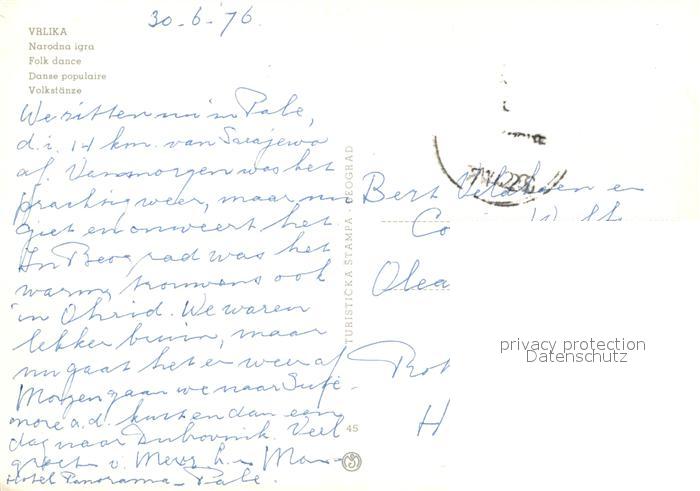 30-6-76.
VRLIKA
Narodna igra
Folk dance
Danse populaire
Volkstänze
We zitten nu in Pale,
d.i. 14 km. van Sarajewo
af. Vanmorgen was het
prachtig weer, maar nu
giet en onweert het.
In Beograd was het
warm, trouwens ook
in Ohrid. We waren
lekker bruin, maar
nu gaat het er weer af
Morgen gaan we naar
more a.d. kust en dan een
dag naar Dubovnik. Veel
groet. v. Mevr. h.
Hotel Panorama - Pale.
TURISTIČKA ŠTAMPA - BEOGRAD
45
Bert en
Co
Olea
Rot
H
privacy protection
Datenschutz